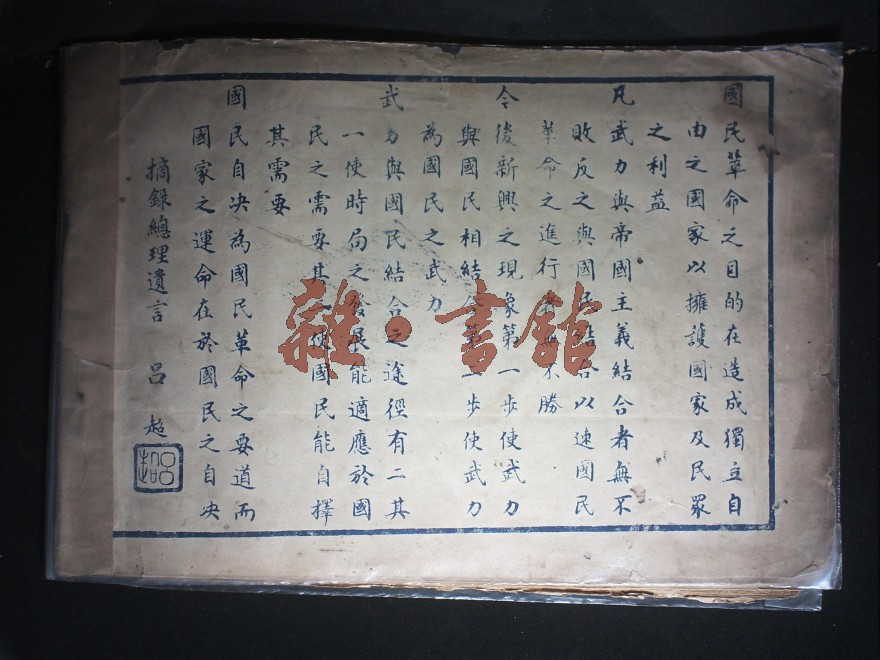 國民革命之目的在造成獨立自
由之國家以擁護國家及民眾
之利益
凡武力與帝國主義結合者無不
敗反之與國民結合以速國民
革命之進行無不勝
今後新興之現象第一步使武力
與國民相結合第二步使武力
為國民之武力
武力與國民結合之途徑有二其
一使時局之發展能適應於國
民之需要其二使國民能自擇
其需要
國民自决為國民革命之要道而
國家之運命在於國民之自决
摘錄總理遺言 呂超
雜·書館